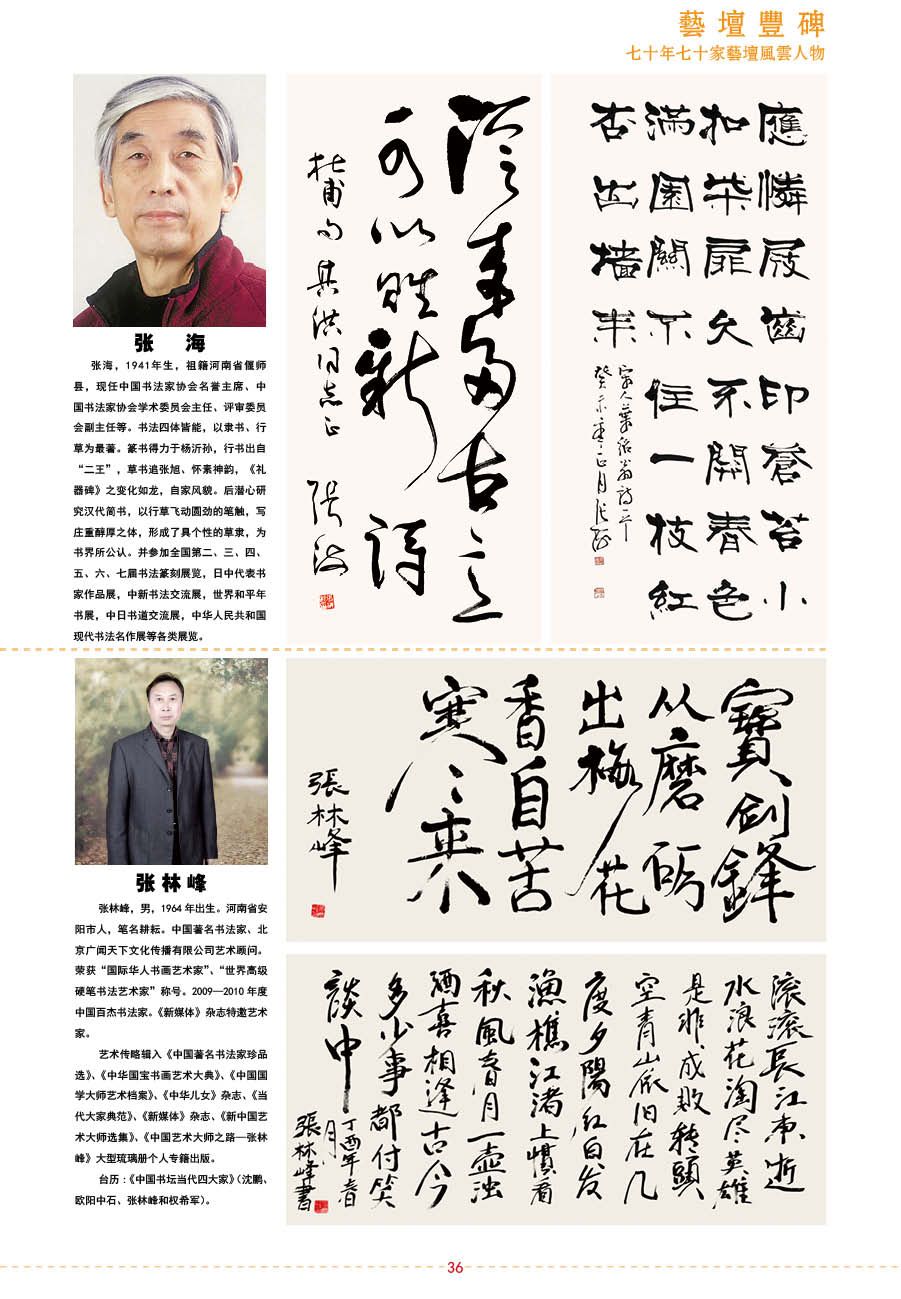 藝壇豐碑
七十年七十家藝壇風雲人物
张 海
张海，1941年生，祖籍河南省偃师
县，现任中国书法家协会名誉主席、中
国书法家协会学术委员会主任、评审委员
会副主任等。书法四体皆能，以隶书、行
草为最著。篆书得力于杨沂孙，行书出自
“二王”，草书追张旭、怀素神韵，《礼
器碑》之变化如龙，自家风貌。后潜心研
究汉代简书，以行草飞动圆劲的笔触，写
庄重醇厚之体，形成了具个性的草隶，为
书界所公认。并参加全国第二、三、四、
五、六、七届书法篆刻展览，日中代表书
家作品展，中新书法交流展，世界和平年
书展，中日书道交流展，中华人民共和国
现代书法名作展等各类展览。
杜甫句 其洪同志正 张海
應憐屐齒印蒼苔小
扣柴扉久不開春色
滿園關不住一枝紅
杏出墙来
张林峰
张林峰，男，1964年出生。河南省安
阳市人，笔名耕耘。中国著名书法家、北
京广闻天下文化传播有限公司艺术顾问。
荣获“国际华人书画艺术家”、“世界高级
硬笔书法艺术家”称号。2009—2010年度
中国百杰书法家。《新媒体》杂志特邀艺术
家。
艺术传略辑入《中国著名书法家珍品
选》、《中华国宝书画艺术大典》、《中国国
学大师艺术档案》、《中华儿女》杂志、《当
代大家典范》、《新媒体》杂志、《新中国艺
术大师选集》、《中国艺术大师之路—张林
峰》大型琉璃册个人专籍出版。
台历：《中国书坛当代四大家》（沈鹏、
欧阳中石、张林峰和权希军）。
寶剑鋒
从磨砺
出梅花
香自苦
寒之来
張林峰
滚滚長江東逝
水浪花淘尽英雄
是非成败转頭
空青山依旧在几
度夕陽红白发
漁樵江渚上慣看
秋風春月一壶浊
酒喜相逢古今
多少事都付笑
談中
丁酉年春月
張林峰書
36